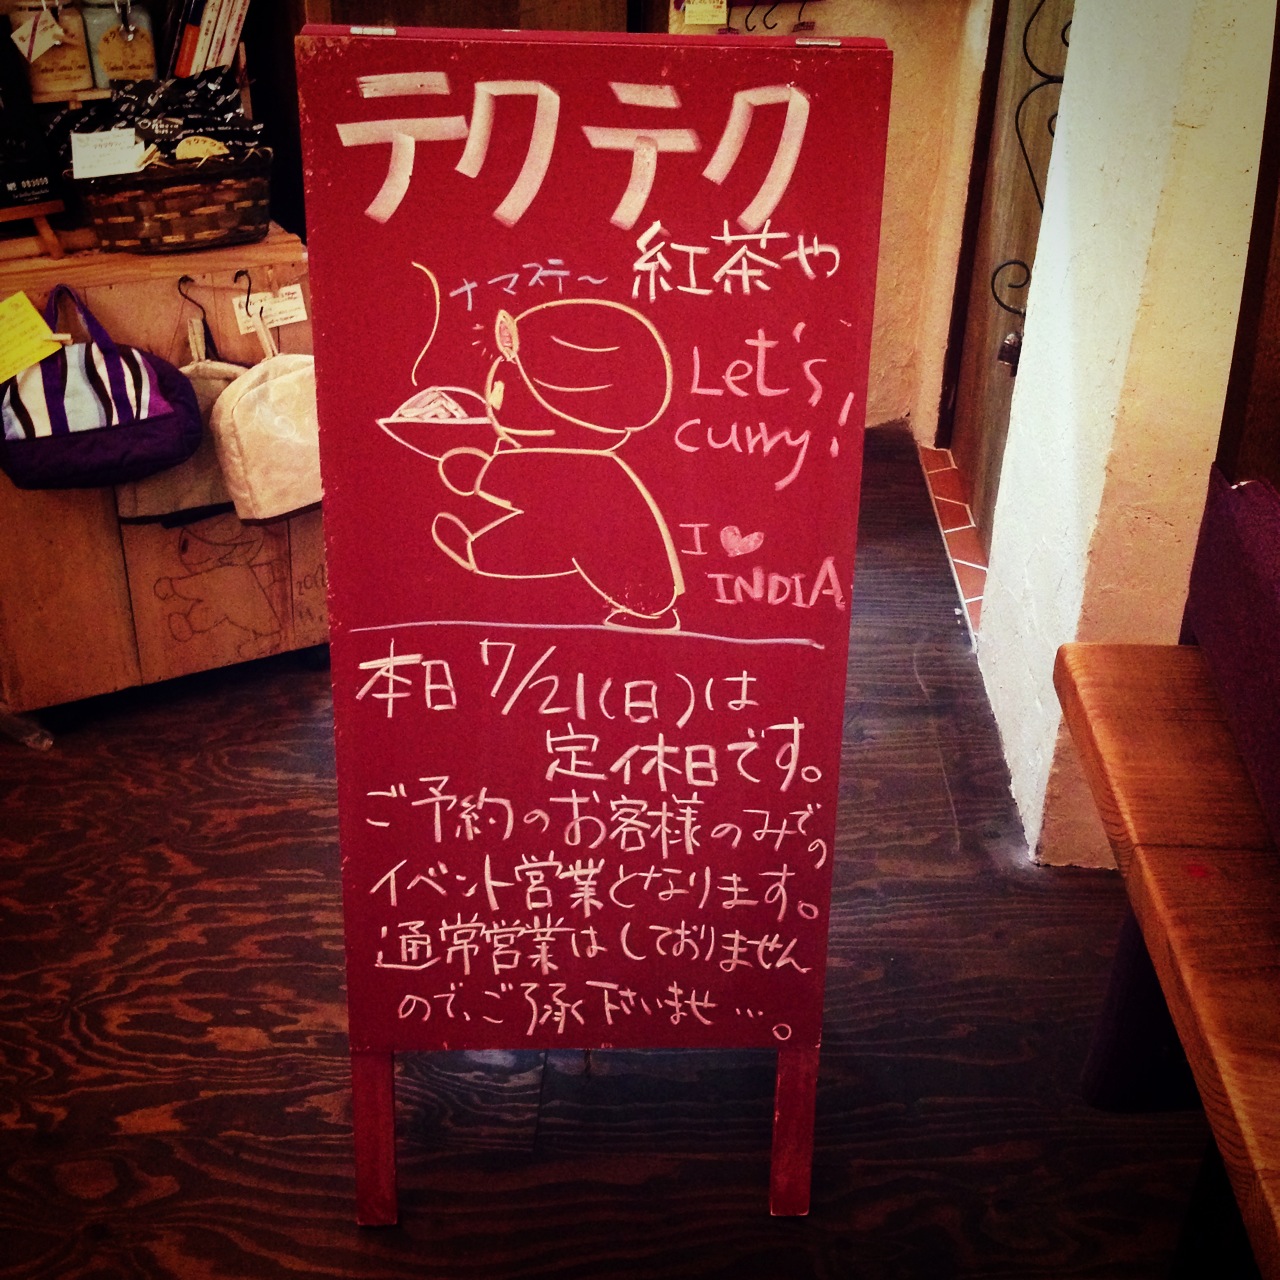 テクテク
紅茶や
ナマステ〜
Let's
curry!
I ♥
INDIA
本日 7/21(日)は
定休日です。
ご予約のお客様のみでの
イベント営業となります。
通常営業はしておりません
ので、ご了承下さいませ…。